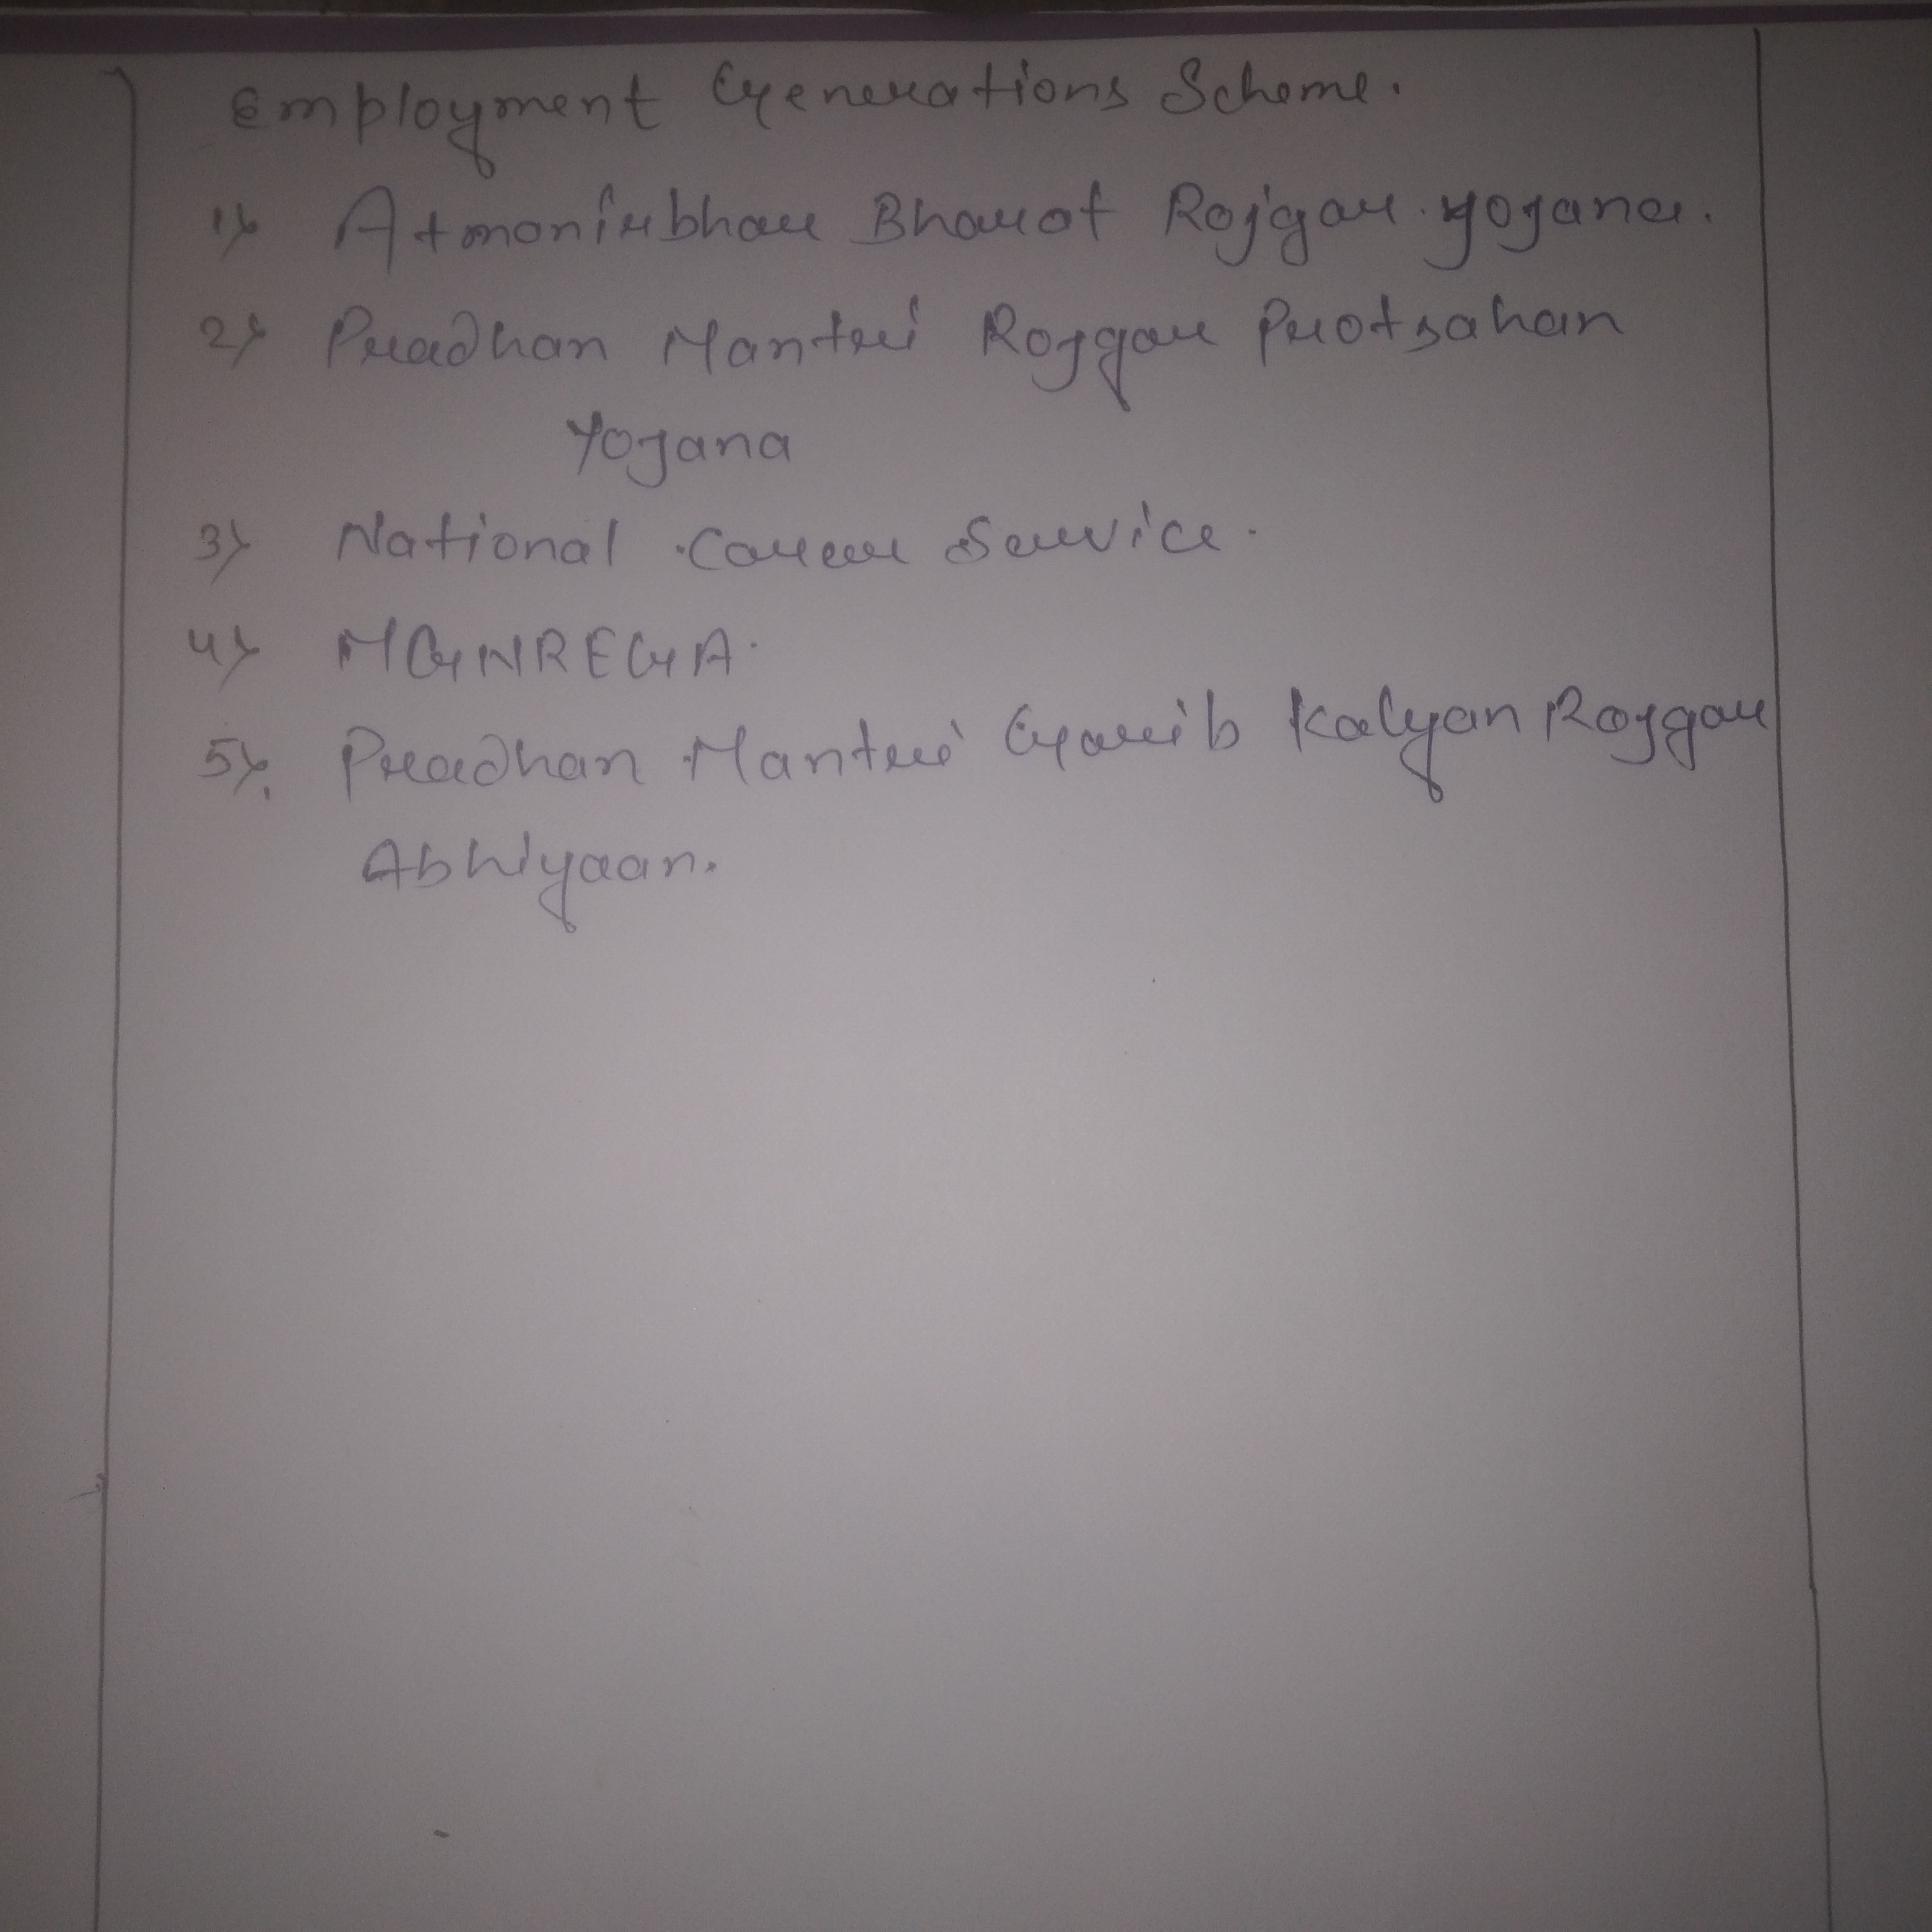 Employment Generations Scheme.
1) Atmanirbhar Bharat Rojgar yojana.
2) Pradhan Mantri Rojgar Protsahan
Yojana
3) National Career Service.
4) MGNREGA.
5) Pradhan Mantri Garib Kalyan Rojgar
Abhiyaan.